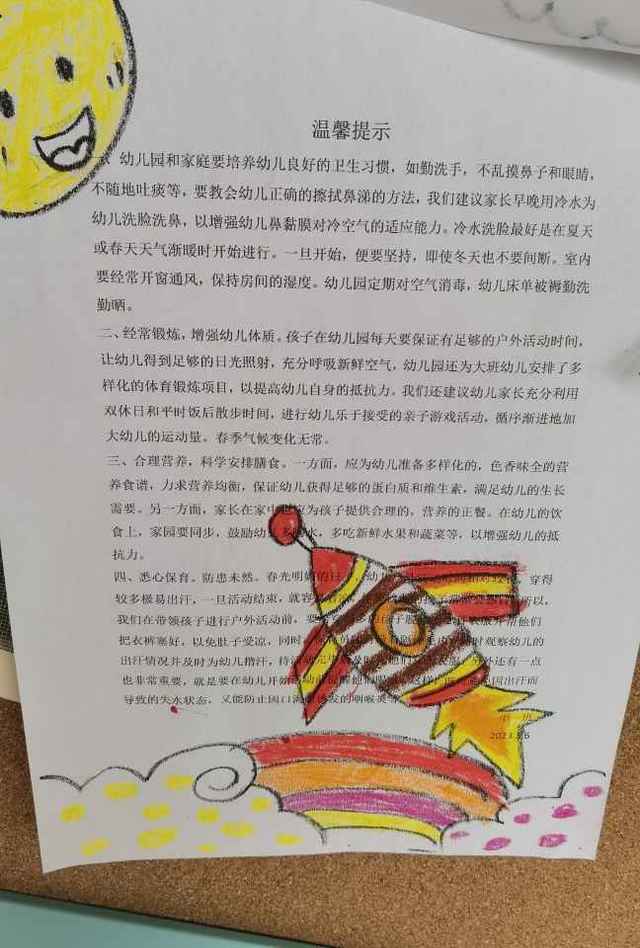 温馨提示
幼儿园和家庭要培养幼儿良好的卫生习惯，如勤洗手，不乱摸鼻子和眼睛，
不随地吐痰等，要教会幼儿正确的擦拭鼻涕的方法，我们建议家长早晚用冷水为
幼儿洗脸洗鼻，以增强幼儿鼻黏膜对冷空气的适应能力。冷水洗脸最好是在夏天
或春天天气渐暖时开始进行。一旦开始，便要坚持，即使冬天也不要间断。室内
要经常开窗通风，保持房间的湿度。幼儿园定期对空气消毒，幼儿床单被褥勤洗
勤晒。
二、经常锻炼，增强幼儿体质。孩子在幼儿园每天要保证有足够的户外活动时间，
让幼儿得到足够的日光照射，充分呼吸新鲜空气，幼儿园还为大班幼儿安排了多
样化的体育锻炼项目，以提高幼儿自身的抵抗力。我们还建议幼儿家长充分利用
双休日和平时饭后散步时间，进行幼儿乐于接受的亲子游戏活动，循序渐进地加
大幼儿的运动量。春季气候变化无常。
三、合理营养，科学安排膳食。一方面，应为幼儿准备多样化的，色香味全的营
养食谱，力求营养均衡，保证幼儿获得足够的蛋白质和维生素，满足幼儿的生长
需要。另一方面，家长在家中也应为孩子提供合理的，营养的正餐。在幼儿的饮
食上，家园要同步，鼓励幼 水，多吃新鲜水果和蔬菜等，以增强幼儿的抵
抗力。
四、悉心保育。防患未然。春光明媚的日 幼儿 穿得
较多极易出汗，一旦活动结束，就容 所以，
我们在带领孩子进行户外活动前，要 帮他们
把衣裤塞好，以免肚子受凉，同时， 时观察幼儿的
出汗情况并及时为幼儿揩汗，待 还有一点
也非常重要，就是要在幼儿开始 因出汗而
导致的失水状态，又能防止因口 发的咽喉炎等